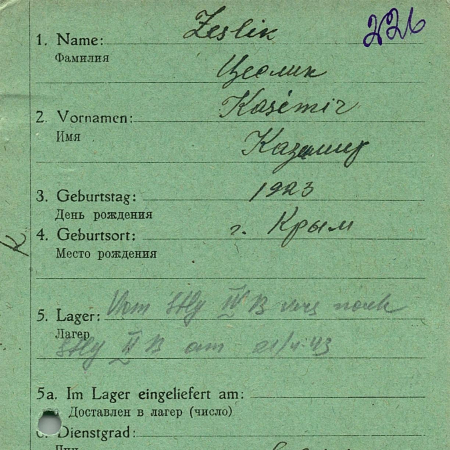 226
1. Name: Zeslik
Фамилия Цеслик
2. Vornamen: Kasémir
Имя Казимир
3. Geburtstag: 1923
День рождения
4. Geburtsort: г. Крым
Место рождения
5. Lager: Vom Stlg IV B nach
Лагер
Stlg II B am 21/4.43
5a. Im Lager eingeliefert am:
Доставлен в лагер (число)
6. Dienstgrad: